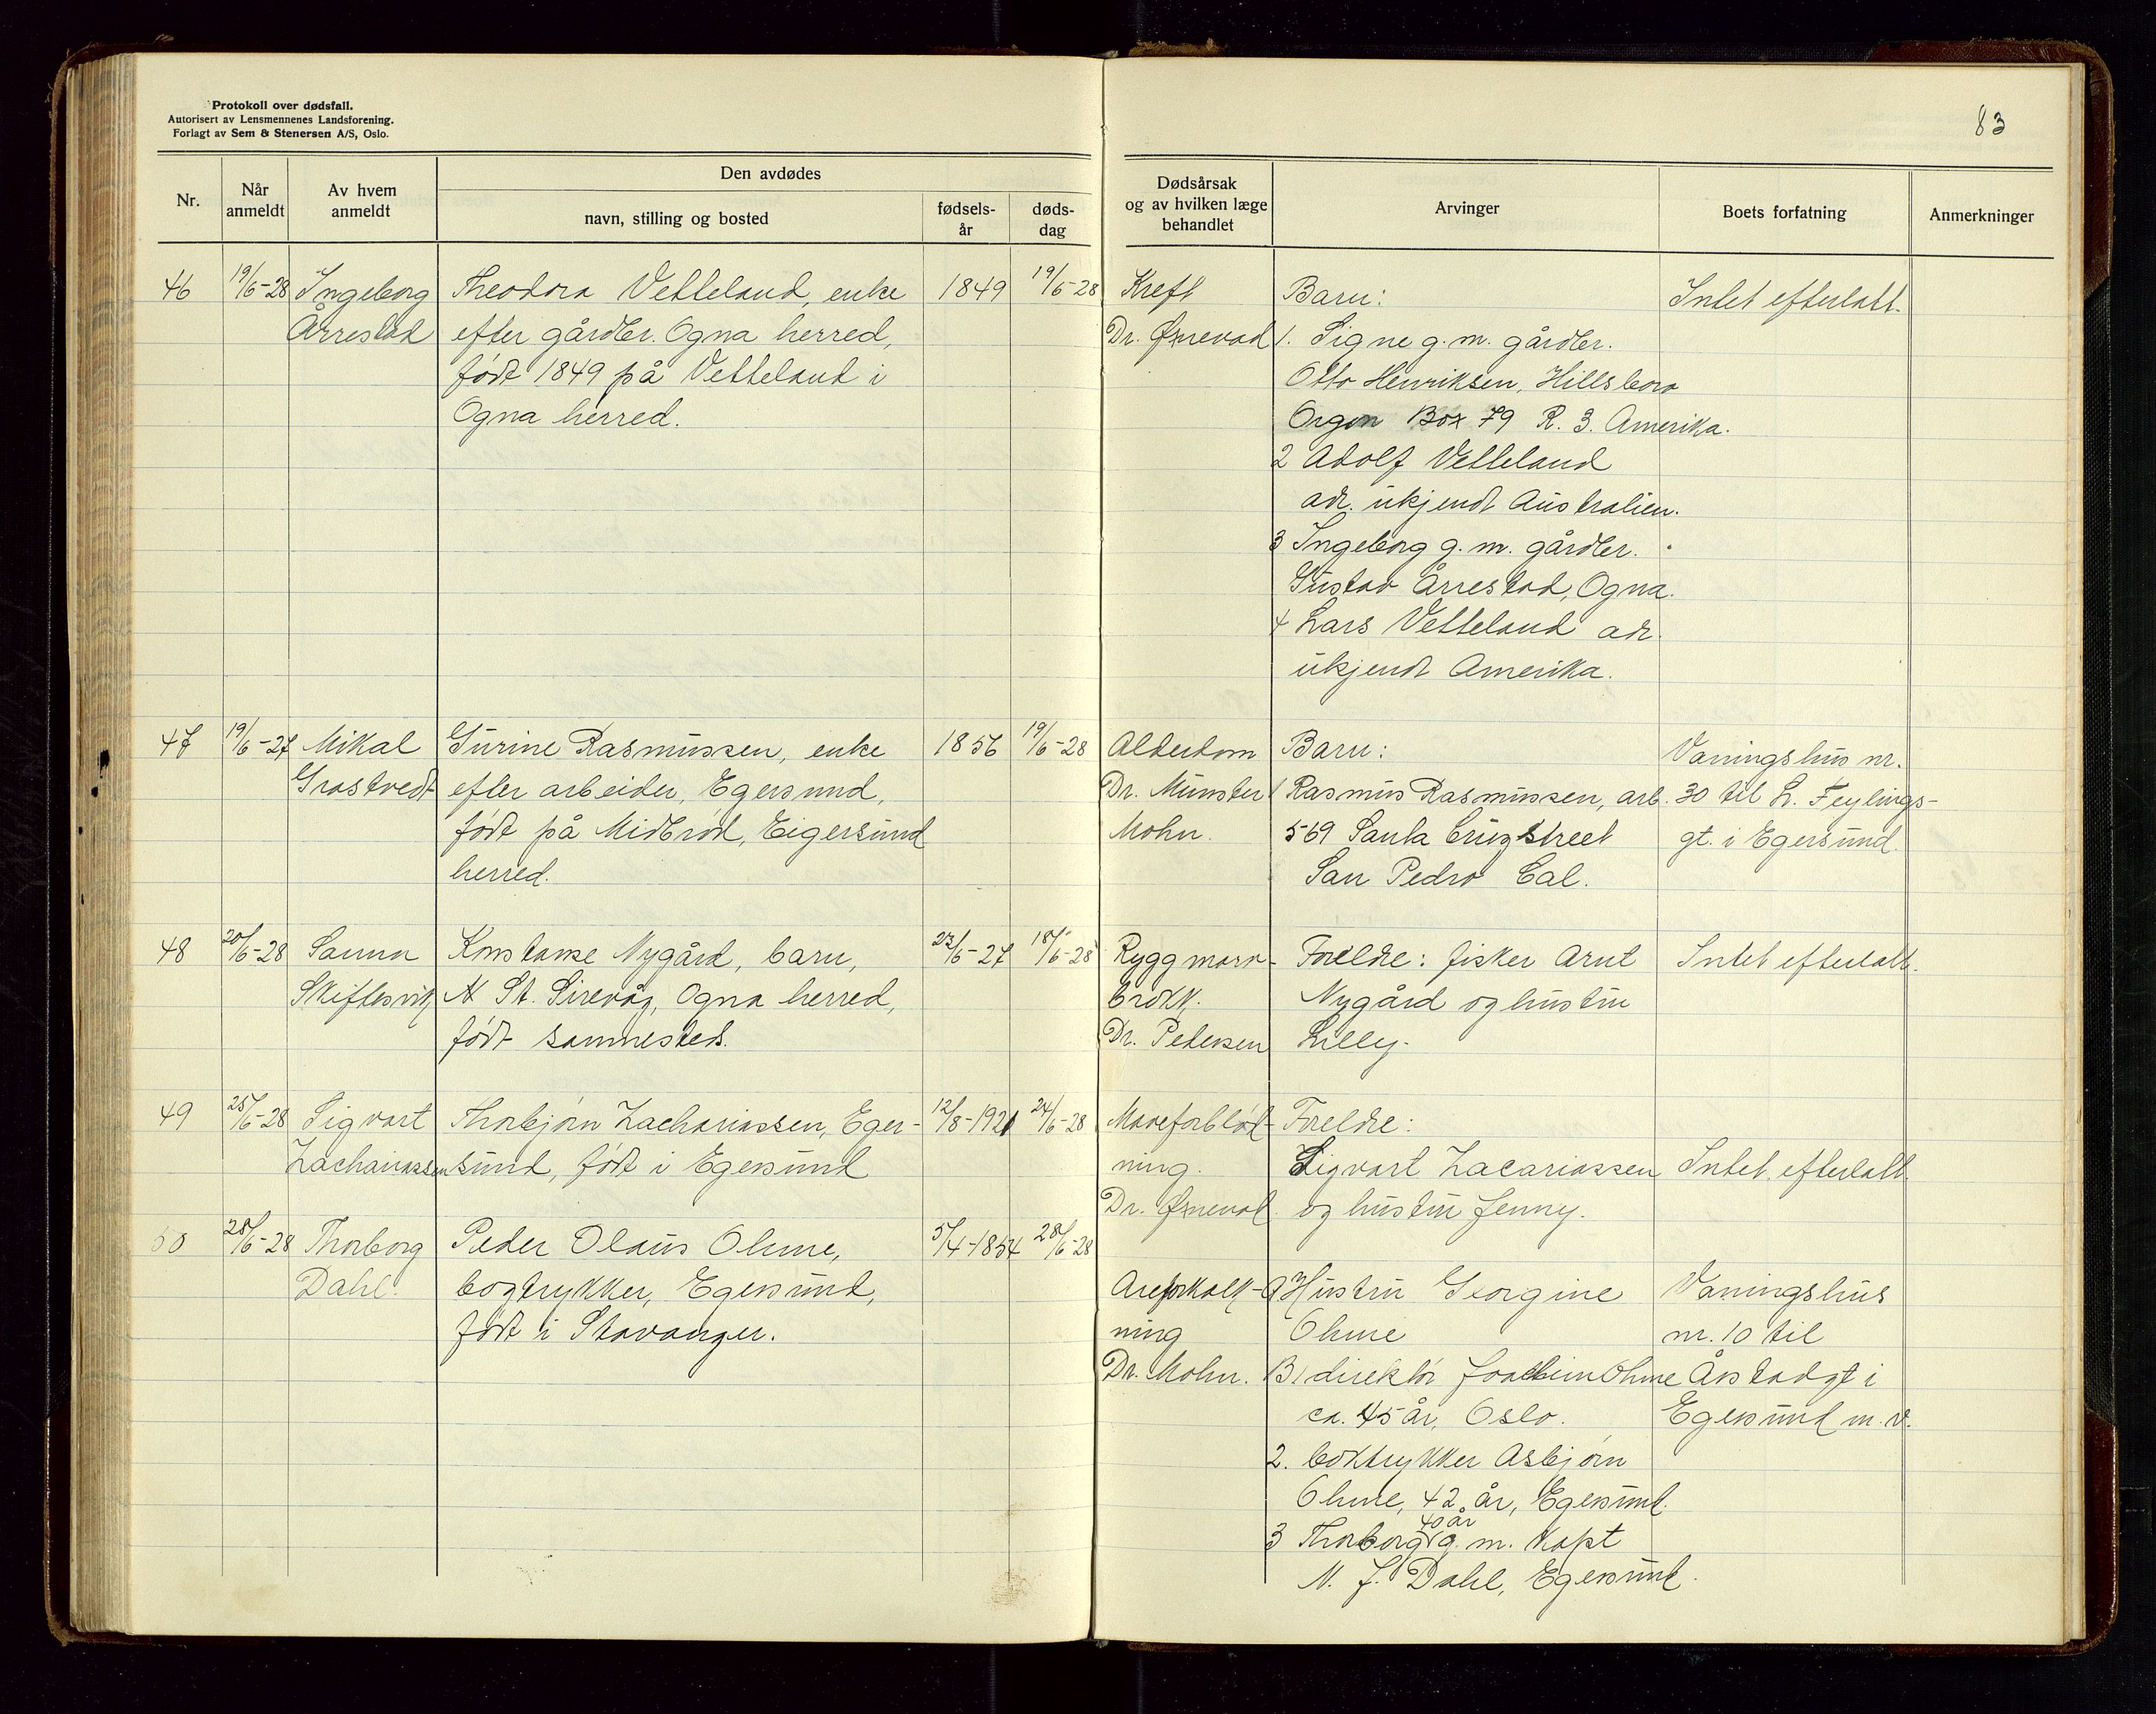 Protokoll over dødsfall.
Autorisert av Lensmennenes Landsforening.
Forlagt av Sem & Stenersen A/S, Oslo.
83
Nr.
Når anmeldt
Av hvem anmeldt
Den avdødes
navn, stilling og bosted
fødsels-år
døds-dag
Dødsårsak og av hvilken læge behandlet
Arvinger
Boets forfatning
Anmerkninger
46 19/6-28 Ingeborg Theodora Vetteland, enke 1849 19/6-28 Kreft Barn: Intet efterlatt.
Årrestad efter gårdbr. Ogna herred, Dr. Øxnevad 1. Signe g. m. gårdbr.
født 1849 på Vetteland i Otto Henriksen, Hillsboro
Ogna herred. Orgon Box 79 R. 3. Amerika.
2 Adolf Vetteland
adr. ukjendt Australien.
3 Ingeborg g. m. gårdbr.
Gustav Årrestad, Ogna.
4 Lars Vetteland adr.
ukjendt Amerika.
47 19/6-27 Mikal Gurine Rasmussen, enke 1856 19/6-28 Alderdom Barn: Vaningshus nr.
Grastvedt efter arbeider, Egersund, Dr. Münster 1 Rasmus Rasmussen, arb. 30 til L. Feylings-
født på Midbrød, Eigersund Mohn. 569 Santa Cruz street gt. i Egersund.
herred. San Pedro Cal.
48 20/6-28 Sanna Konstanse Nygård, barn, 22/6-27 18/6-28 Ryggmarv- Foreldre: fisker Arnt Intet efterlatt.
Skiftesvik, N St. Sirevåg, Ogna herred, brokk. Nygård og hustru
født sammesteds. Dr. Pedersen Lilly.
49 25/6-28 Sigvart Thorbjørn Zachariassen, Eger- 12/8-1921 24/6-28 Maveforblød- Foreldre:
Zachariassen sund, født i Egersund ning. Sigvart Zacariassen Intet efterlatt.
Dr. Øxnevad. og hustru Jenny.
50 28/6-28 Thorborg Peder Olaus Ohme, 5/4-1854 28/6-28
Dahl. bogtrykker, Egersund, Areforkalk- A Hustru Georgine Vaningshus
født i Stavanger. ning Ohme nr. 10 til
Dr. Mohn. B 1 direktør Joachim Ohme Årstadgt i
ca. 45 år, Oslo. Egersund m. v.
2. boktrykker Asbjørn
Ohme, 42 år, Egersund.
40 år
3 Thorborg g. m. Kapt
N. J. Dahl, Egersund.